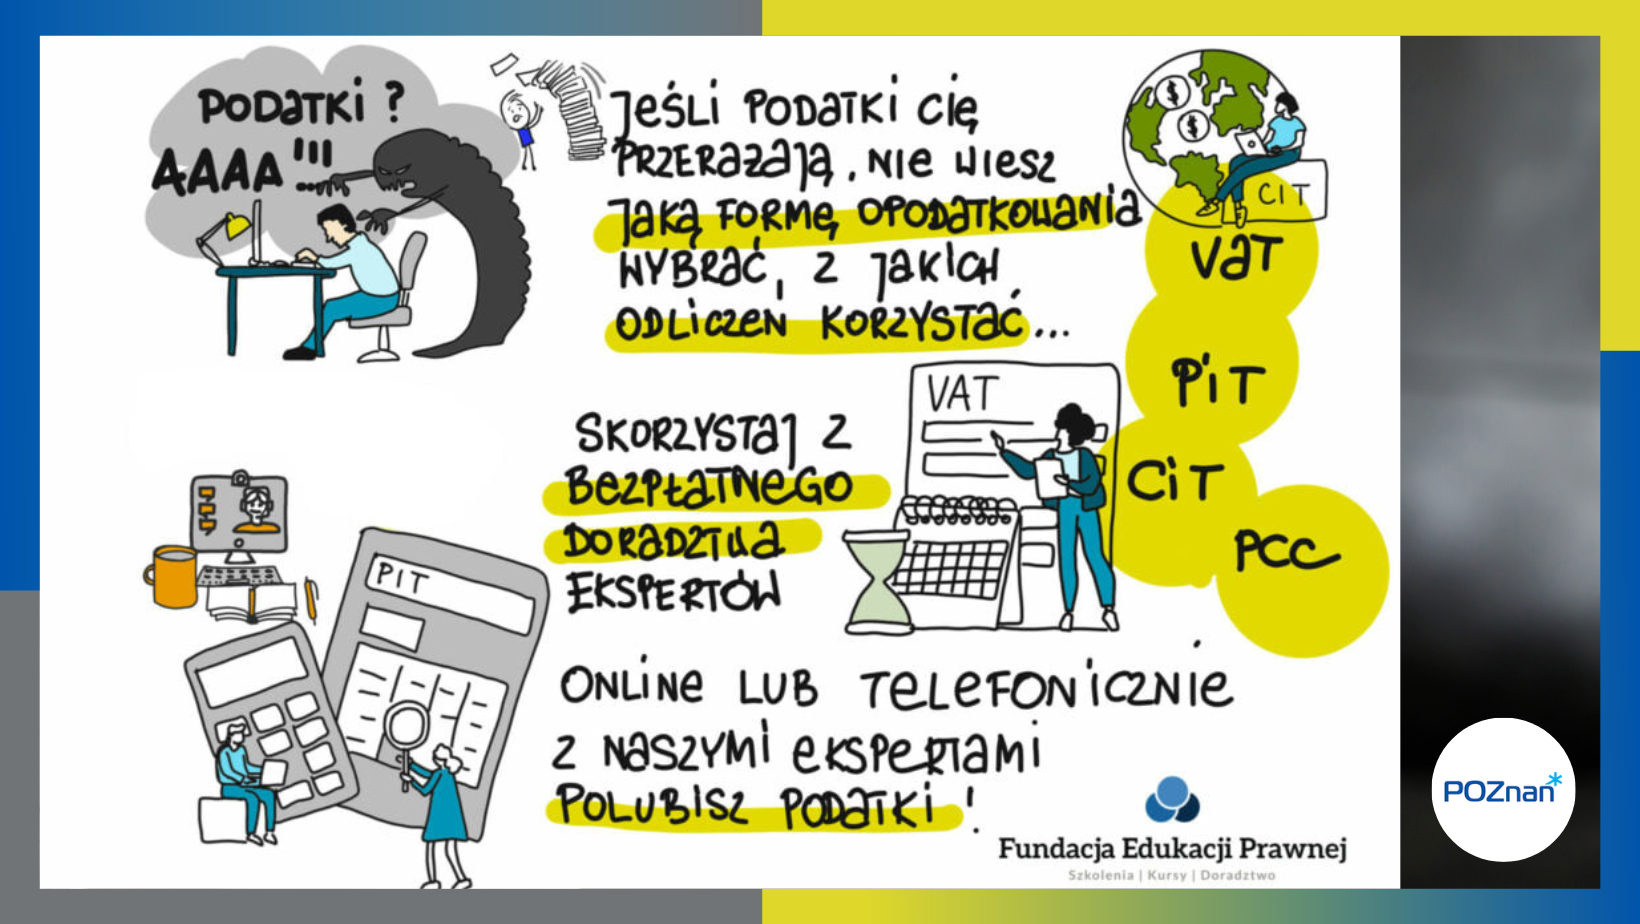 PODATKI?
AAAA!!!
JEŚLI PODATKI CIĘ
PRZERAŻAJĄ, NIE WIESZ
JAKĄ FORMĘ OPODATKOWANIA
WYBRAĆ, Z JAKICH
ODLICZEŃ KORZYSTAĆ...
CIT
VAT
PIT
CIT
PCC
VAT
SKORZYSTAJ Z
BEZPŁATNEGO
DORADZTWA
EKSPERTÓW
PIT
ONLINE LUB TELEFONICZNIE
Z NASZYMI EKSPERTAMI
POLUBISZ PODATKI!
Fundacja Edukacji Prawnej
Szkolenia | Kursy | Doradztwo
POZnan*